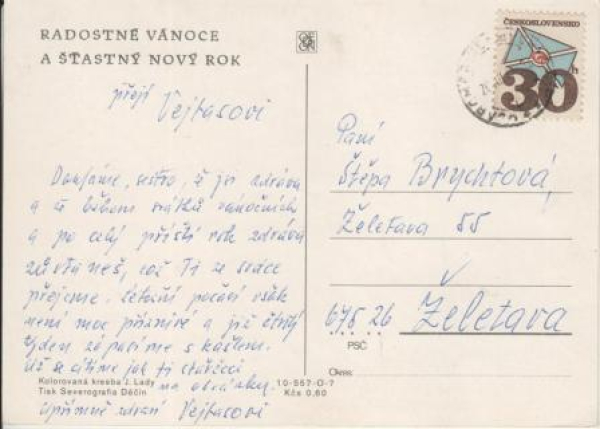 RADOSTNÉ VÁNOCE
A ŠŤASTNÝ NOVÝ ROK
přejí Vejtasovi
Doufáme, sestro, že jsi zdráva
a že během svátků vánočních
a po celý příští rok zdráva
zůstaneš, což Ti ze srdce
přejeme. Letošní počasí však
není moc příznivé a již čtvrtý
týden zápasíme s kašlem.
Už se cítíme jak ti stařečci
na obrázku.
Upřímně zdraví Vejtasovi
Kolorovaná kresba J. Lady
Tisk Severografia Děčín
10-557-O-7
Kčs 0,60
ČESKOSLOVENSKO
30
h
Paní
Štěpa Brychtová
Želetava 55
v
675 26 Želetava
PSČ
Okres: